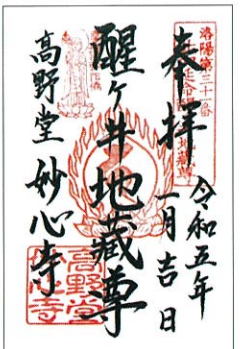 奉拝
令和五年
一月吉日
洛陽第三十一番
醒ヶ井地蔵尊
高野堂 妙心寺
高野堂
妙心寺